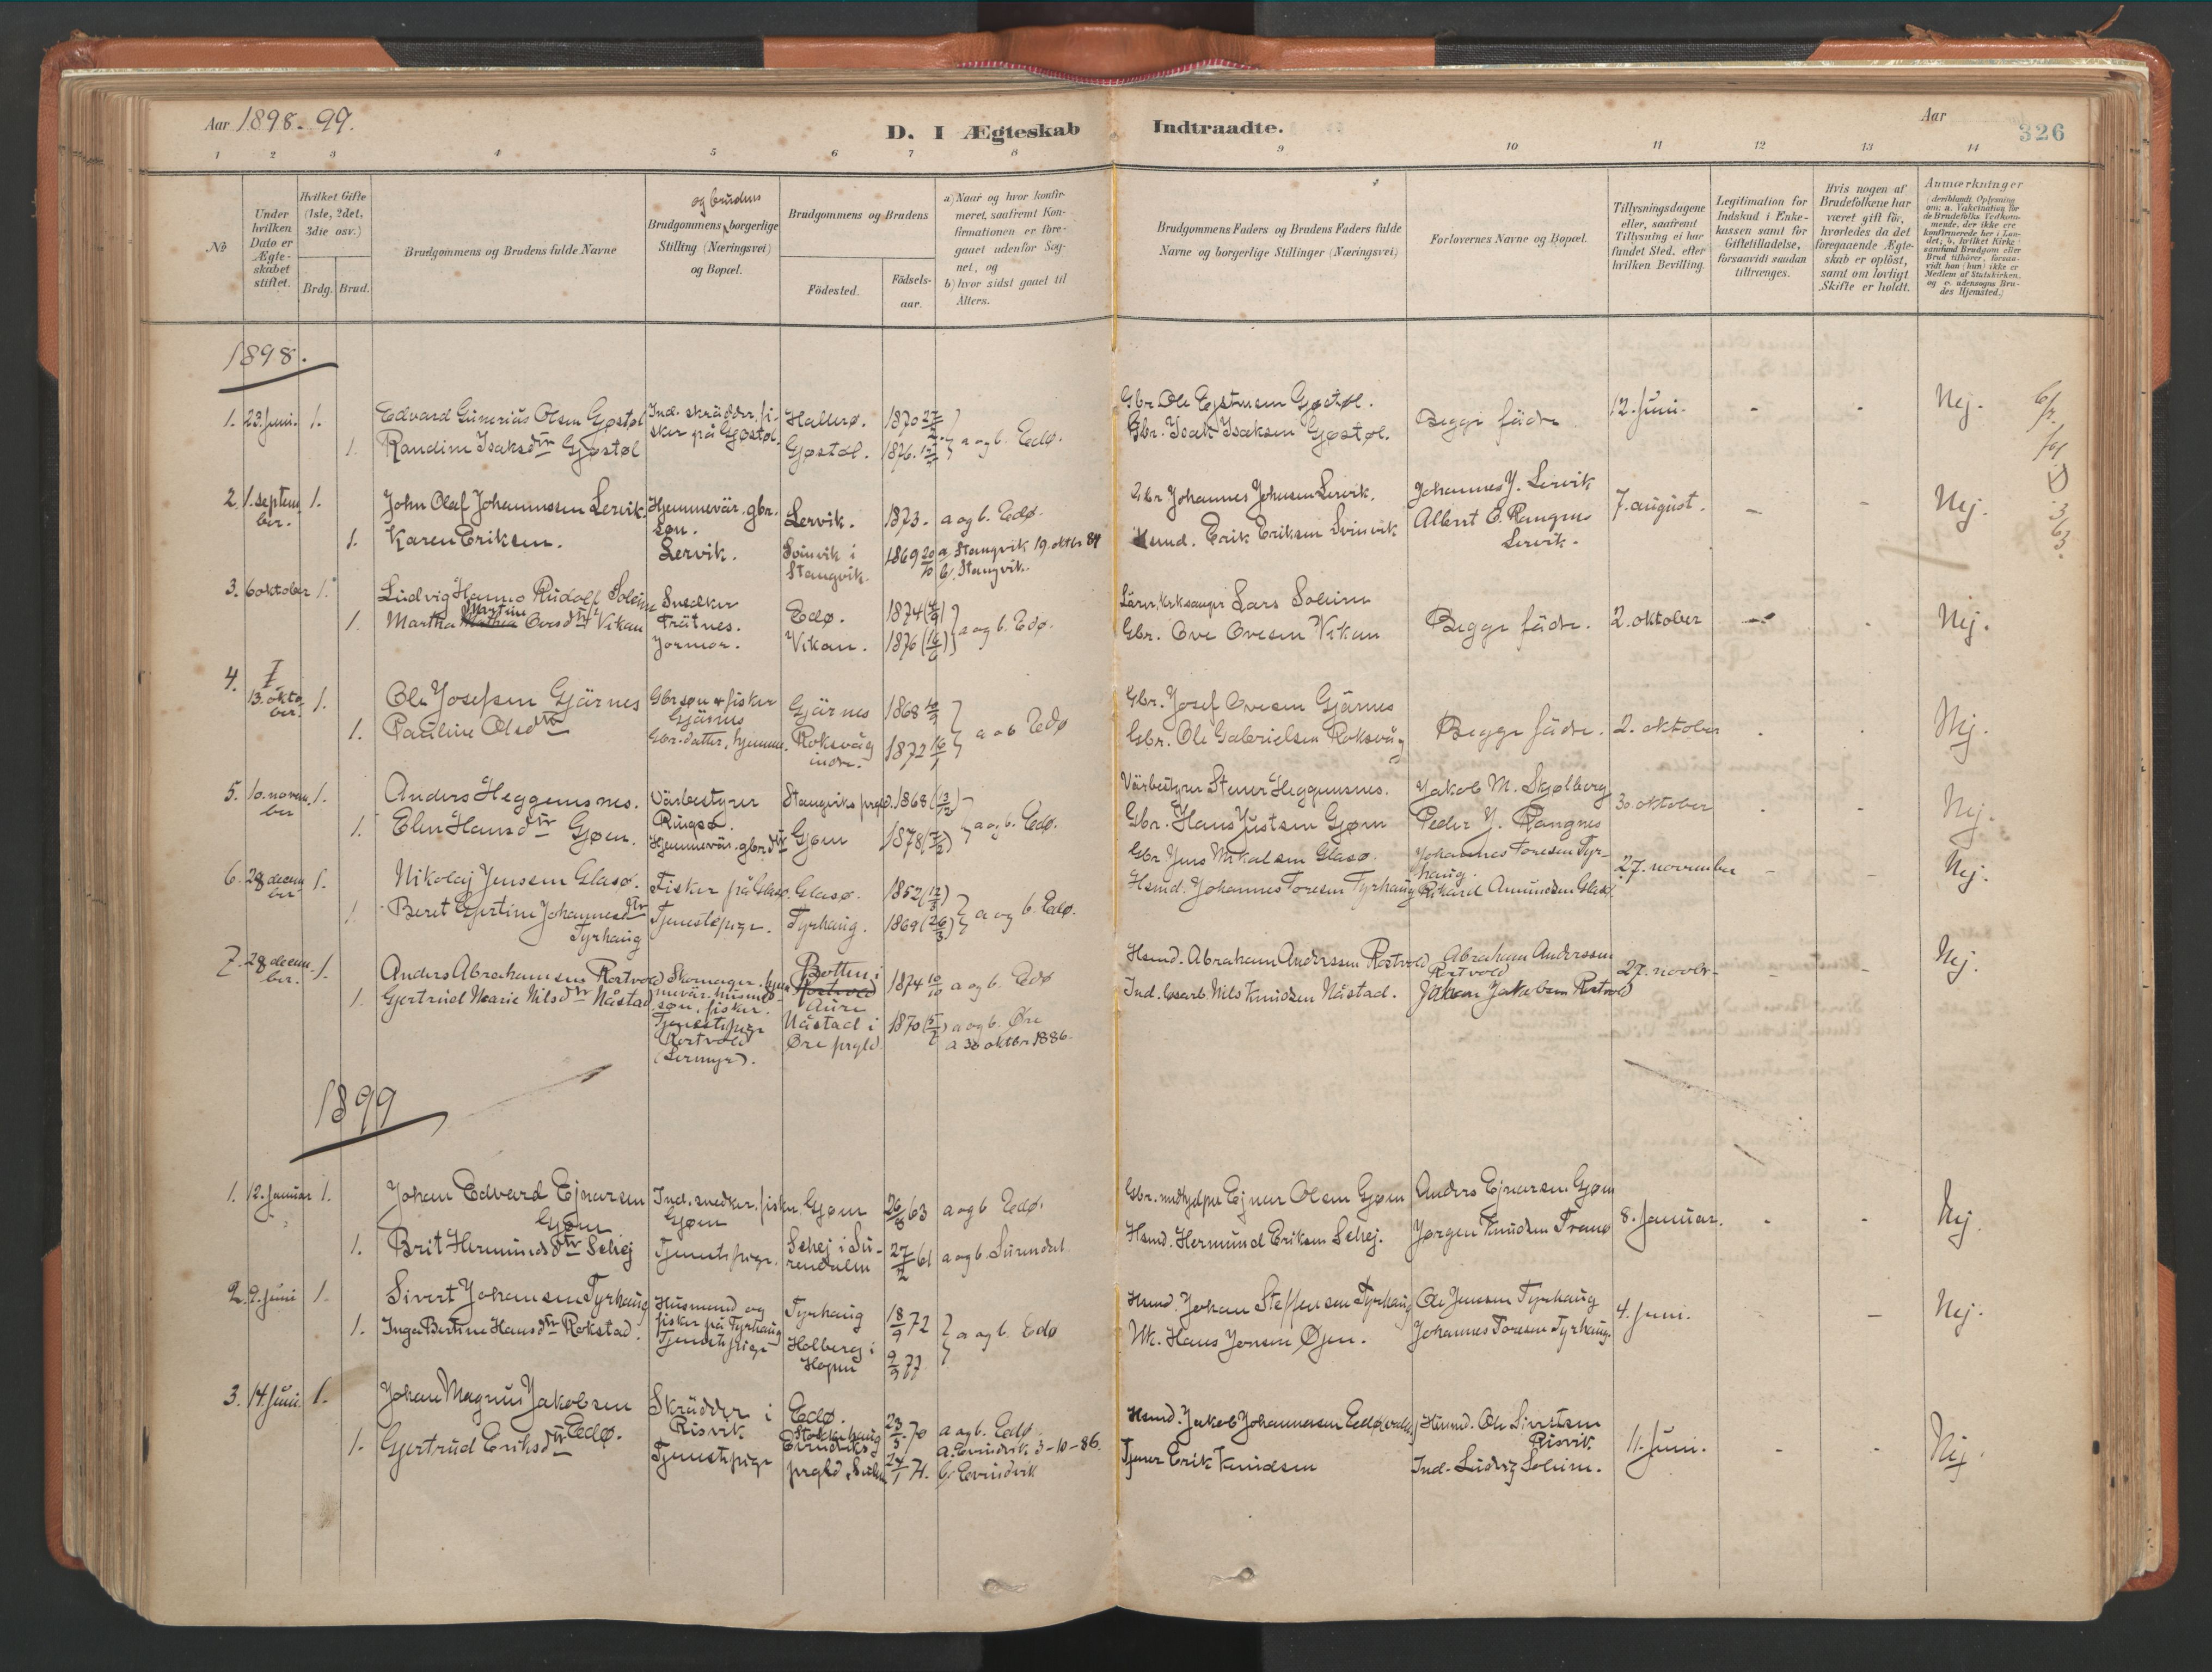 Aar 1898-99.
D. I Ægteskab Indtraadte.
Aar
326
1 2 3 4 5 6 7 8 9 10 11 12 13 14
No
Under hvilken Dato er Ægteskabet stiftet.
Hvilket Gifte (1ste, 2det, 3die osv.)
Brdg. Brud.
Brudgommens og Brudens fulde Navne
og brudens
Brudgommens borgerlige Stilling (Næringsvei) og Bopæl.
Brudgommens og Brudens
Födested.
Födselsaar.
a) Naar og hvor konfirmeret, saafremt Konfirmationen er foregaaet udenfor Sognet, og
b) hvor sidst gaaet til Alters.
Brudgommens Faders og Brudens Faders fulde Navne og borgerlige Stillinger (Næringsvei)
Forlovernes Navne og Bopæl.
Tillysningsdagene eller, saafremt Tillysning ei har fundet Sted, efter hvilken Bevilling.
Legitimation for Indskud i Enkekassen samt for Giftetilladelse, forsaavidt saadan tiltrænges.
Hvis nogen af Brudefolkene har været gift för, hvorledes da det foregaaende Ægteskab er oplöst, samt om lovligt Skifte er holdt.
Anmærkninger (deriblandt Oplysning om: a. Vakcination for de Brudefolks Vedkommende, der ikke ere konfirmerede her i Landet; b. hvilket Kirkesamfund Brudgom eller Brud tilhörer, forsaavidt han (hun) ikke er Medlem af Statskirken, og c. udensogns Brudes Hjemsted.)
1898.
1. 23. Juni. 1. Edvard Gunerius Olsen Gjøstøl Ind. skrädder, fisker på Gjøstøl. Hallerø. 1870 Gbr. Ole Gjøstøl. Begge fädre 12. Juni. - - Nej.
1. Randine Isaksdtr Gjøstøl Gjøstøl. 1876. a og b. Edø. Gbr. Isak Isaksen Gjøstøl.
2. 1. september. 1. John Olaf Johannessen Lervik. Hjemmevär. gbr. søn. Lervik. 1873. a og b. Edø. Gbr. Johannes Johnsen Lervik. Johannes J. Lervik 7. august. - - Nej.
1. Karen Eriksen. Lervik. Svinvik i Stangvik. 1869 20/10 a. Stangvik 19. oktbr 84 b. Stangvik. Hsmd. Erik Eriksen Svinvik Albert O. Rangnes Lervik.
3. 6 oktober 1. Ludvig Hanno Rudolf Solem Snedker Trätnes. Edø. 1874 Lärer, kirksanger Lars Solem Begge fädre. 2. oktober - - Nej.
1. Martha Martine Ovesdtr Vikan Jormor. Vikan. 1876 a og b. Edø. Gbr. Ove Ovesen Vikan
4. 13. oktober. 1. Ole Josefsen Gjärnes Gbr søn & fisker Gjärnes Gjärnes 1868 Gbr. Josef Ovesen Gjärnes Begge fädre. 2. oktober - - Nej.
1. Pauline Olsdtr Gbr. datter, hjemme. Roksvåg indre. 1872 16/1 a o b Edø Gbr. Ole Gabrielsen Roksvåg
5. 10. november 1. Anders Heggemsnes. Värbestyrer Ringsø. Stangviks prgld. 1868 Värbestyrer Stener Heggemsnes. Jakob M. Skjølberg 30. oktober - - Nej.
1. Elen Hansdtr Gjøen. Hjemmevär. gbrdtr Gjøen 1878 a og b. Edø. Gbr. Hans Justsen Gjøen Peder J. Rangnes
6. 28 december 1. Nikolaj Jenssen Glasø. Fisker på Glasø. Glasø. 1852 Gbr Jens Mikalsen Glasø. Johannes Toresen Tyrhaug. 27. november - - Nej.
1. Beret Gjertine Johannesdtr Tyrhaug Tjenestepige. Tyrhaug. 1869 (26/3) a og b. Edø. Hsmd. Johannes Toresen Tyrhaug Rikard Amundsen Glasø.
7. 28 december. 1. Anders Abrahamsens Rostvold Skomager. hjemmevär. husmdsøn, fisker. Botten i Rostvold Aure 1874 10/10 a og b. Edø Hsmd. Abraham Anderssen Rostvold Abraham Anderssen Rostvold 27. novbr. - - Nej.
1. Gjertrud Marie Nilsdtr Nåstad Tjenestepige Rostvold (Lermyr). Nåstad i Øre prgld. 1870 a og b. Øre a 30 oktbr 1886. Ind. løsarb. Nils Knudsen Nåstad. Jakob Jakobsen Rostvold
1899
1. 12. Januar 1. Johan Edvard Ejnarsen Gjøen Ind. snedker, fisker. Gjøen Gjøen 26/8 63 a og b Edø. Gbr. medhjelper Ejnar Olsen Gjøen Anders Ejnarsen Gjøen 8. Januar. - - Nej
1. Brit Hermundsdtr Sehej Tjenestepige. Sehej i Surendalen 27/2 61 a og b. Surendal Hsmd. Hermund Eriksen Sehej. Jørgen Knudsen Tranø
2. 9. Juni 1. Sivert Johansen Tyrhaug Husmand og fisker på Tyrhaug Tyrhaug 18/9 72 Hsmd. Johan Steffensen Tyrhaug Ole Jensen Tyrhaug 4. Juni. - Nej.
1. Inga Bertine Hansdtr Rokstad. Tjenestepige Holberg i Hopen 9/9 77 a og b. Edø Uk. Hans Jonsen Øjen. Johannes Toresen Tyrhaug.
3. 14. Juni. 1. Johan Magnus Jakobsen Edø. Skrädder i Risvik Edø. 23/5 70 a og b. Edø. Hsmd. Jakob Johannessen Edøvold Husmd. Ole Sivertsen Risvik 11. Juni. - - Nej.
1. Gjertrud Eriksdtr Tjenestepige Stokkehaug Evindviks prgld. 24/1 71. a. Evindvik 3-10-86. b. Evindvik Tjener Erik Knudsen Ind. Ludvig Solem.